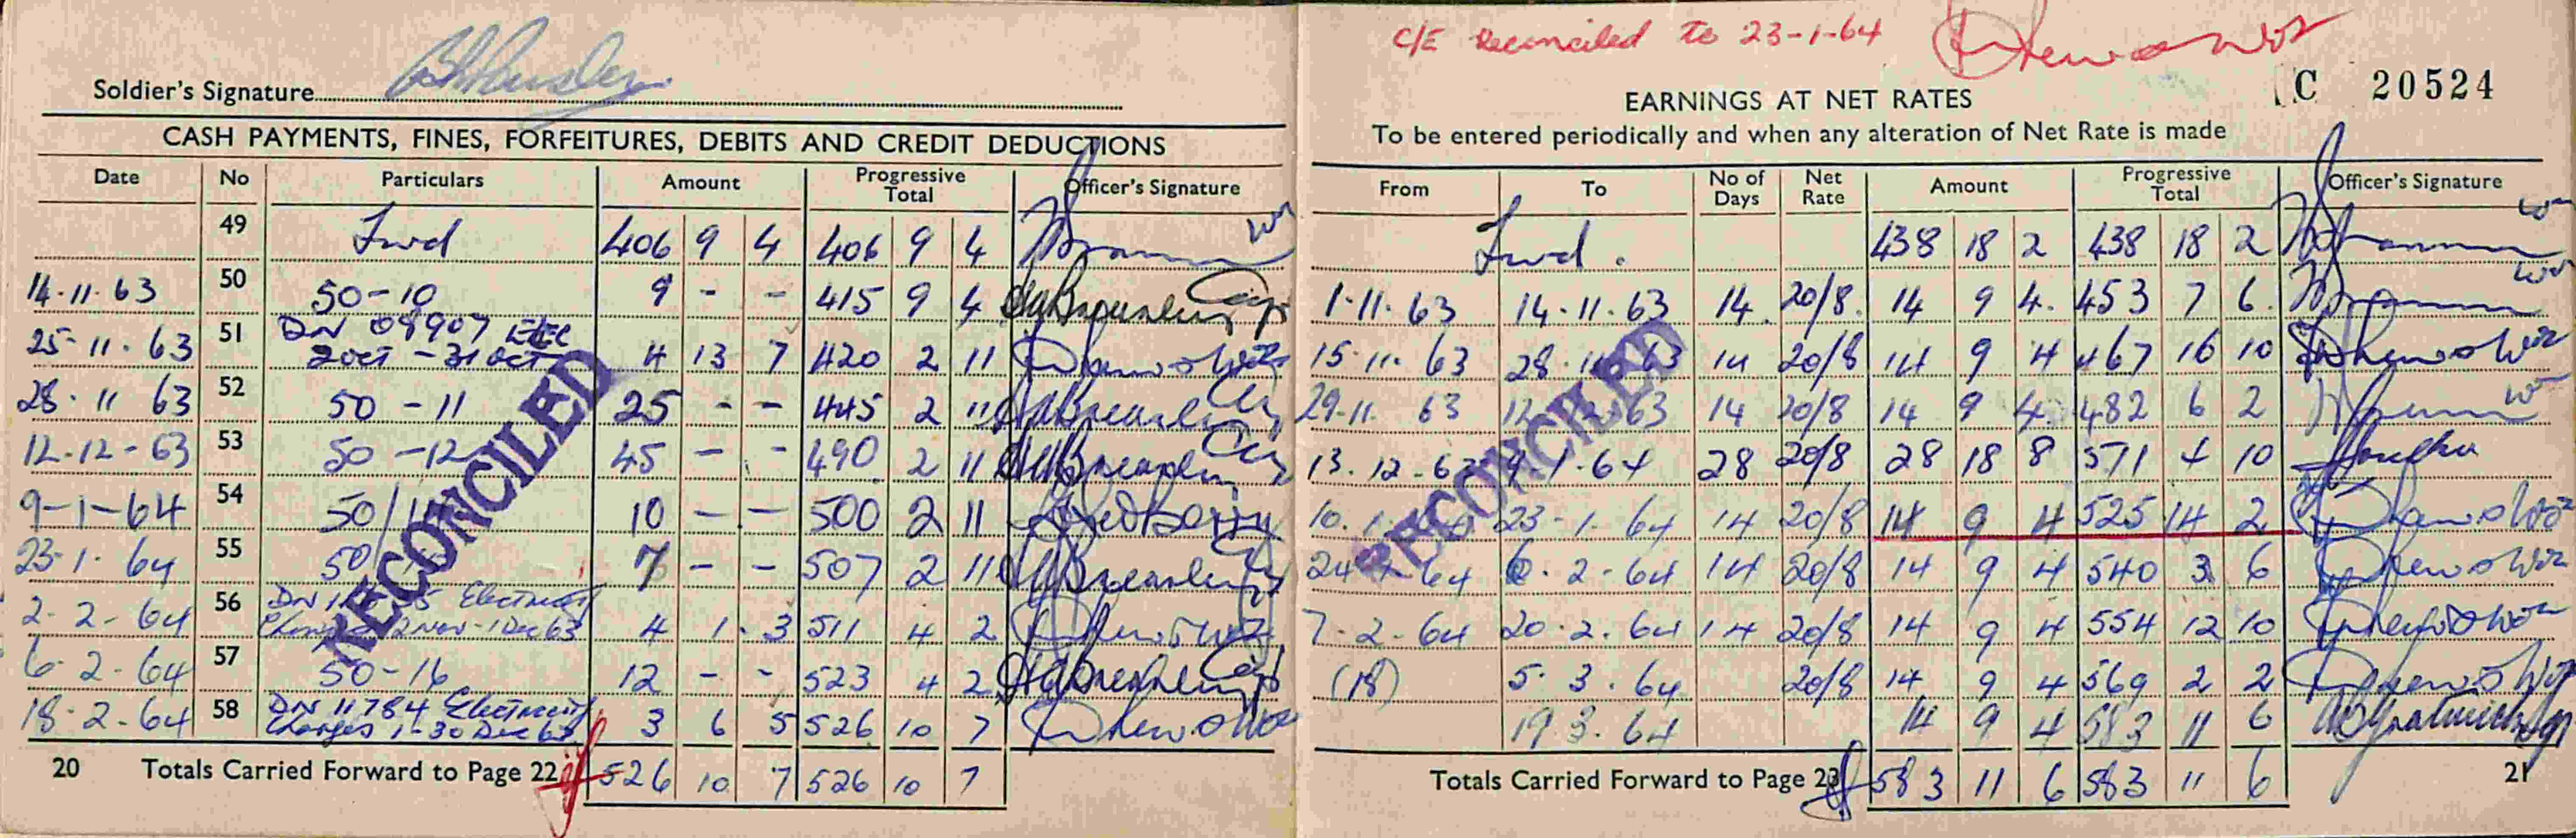 Soldier's Signature
CASH PAYMENTS, FINES, FORFEITURES, DEBITS AND CREDIT DEDUCTIONS
Date No Particulars Amount Progressive Total Officer's Signature
49 Fwd 406 9 4 406 9 4
14.11.63 50 50-10 9 - - 415 9 4
25-11.63 51 DN 08907 ELEC 2 OCT - 31 OCT 4 13 7 420 2 11
28.11 63 52 50-11 25 - - 445 2 11
12-12-63 53 50-12 45 - - 490 2 11
9-1-64 54 50/ 10 - - 500 2 11
23.1.64 55 50 7 - - 507 2 11
2-2-64 56 DN Electricity 2 Nov - 1 Dec 63 4 1.3 511 4 2
6.2-64 57 50-16 12 - - 523 4 2
18-2-64 58 DN 11784 Electricity Charges 1-30 Dec 63 3 6 5 526 10 7
20 Totals Carried Forward to Page 22 526 10 7 526 10 7
C/E Reconciled to 23-1-64
C 20524
EARNINGS AT NET RATES
To be entered periodically and when any alteration of Net Rate is made
From To No of Days Net Rate Amount Progressive Total Officer's Signature
Fwd. 438 18 2 438 18 2
1.11.63 14.11.63 14. 20/8. 14 9 4. 453 7 6.
15.11.63 28.11.63 14 20/8 14 9 4 467 16 10
29-11. 63 12.12.63 14 20/8 14 9 4. 482 6 2
13.12-63 9.1.64 28 20/8 28 18 8 571 4 10
10.1.64 23-1.64 14 20/8 14 9 4 525 14 2
24.1.64 6.2-64 14 20/8 14 9 4 540 3 6
7-2-64 20.2.64 14 20/8 14 9 4 554 12 10
(18) 5.3.64 20/8 14 9 4 569 2 2
19 3.64 14 9 4 583 11 6
Totals Carried Forward to Page 23 583 11 6 583 11 6
21
RECONCILED
RECONCILED